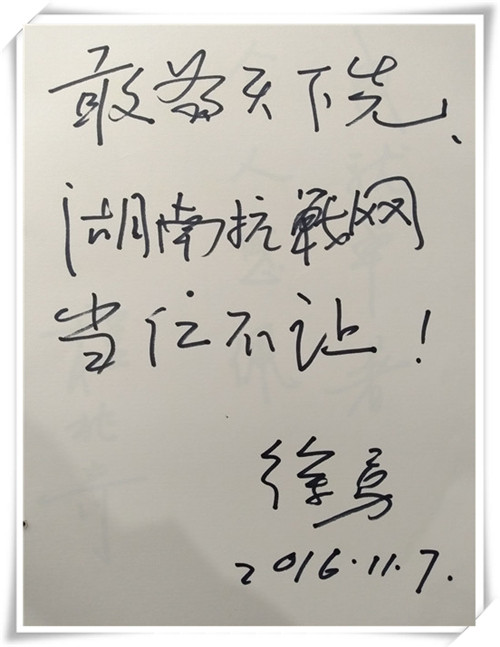 敢為天下先、
湖南抗戰网
当仁不让！
徐
2016.11.7.